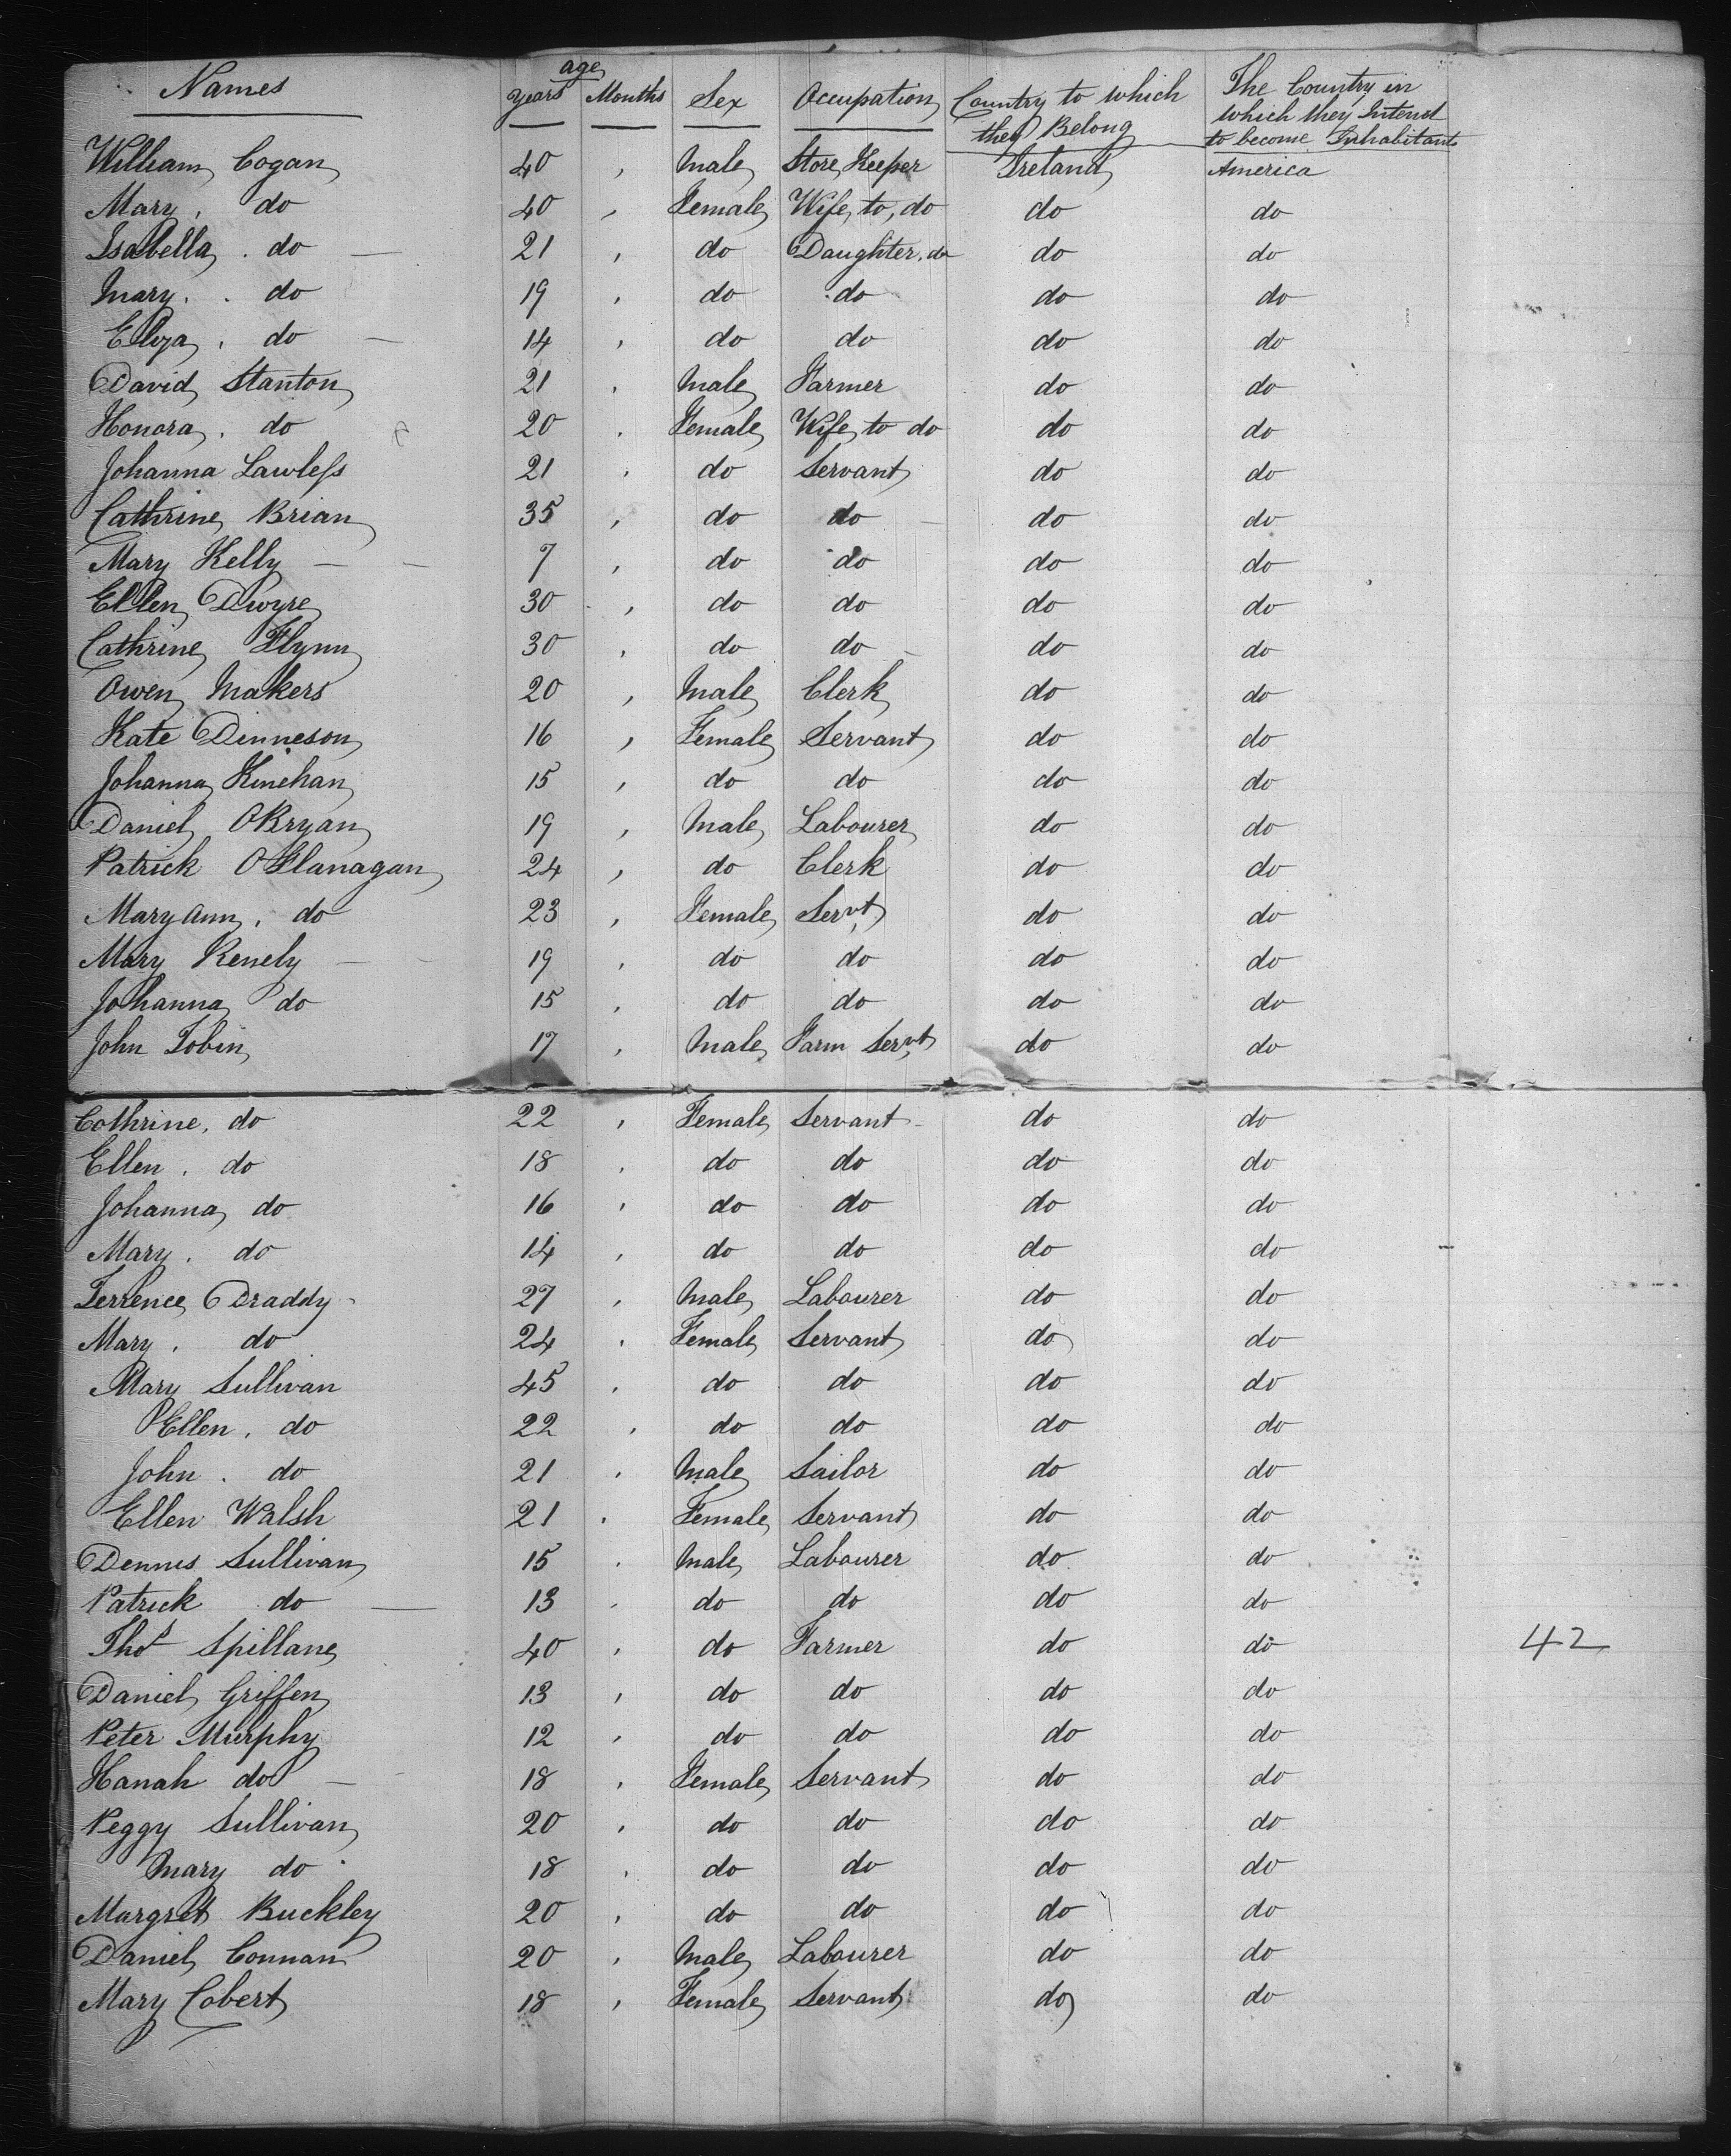 Names age years Months Sex Occupation Country to which they Belong The Country in which they Intend to become Inhabitants
William Cogan 40 , Male Store Keeper Ireland America
Mary, do 40 , Female Wife to, do do do
Isabella . do — 21 , do Daughter, do do do
Mary . . do 19 , do do do do
Eliza , do — 14 , do do do do
David Stanton 21 . Male Farmer do do
Honora . do 20 . Female Wife to do do do
Johanna Lawless 21 . do Servant do do
Cathrine Brian 35 , do do do do
Mary Kelly — — 7 , do do do do
Ellen Dwyre 30 , do do do do
Cathrine Flynn 30 , do do do do
Owen Makers 20 , Male Clerk do do
Kate Dinneson 16 , Female Servant do do
Johanna Kinehan 15 , do do do do
Daniel OBryan 19 , Male Labourer do do
Patrick OFlanagan 24 , do Clerk do do
Mary Ann, do 23 , Female Servt do do
Mary Renely — 19 , do do do do
Johanna do 15 . do do do do
John Tobin 17 , Male Farm Servt do do
Cothrine, do 22 , Female Servant do do
Ellen . do 18 . do do do do
Johanna do 16 , do do do do
Mary . do 14 , do do do do
Terrence Draddy 27 . Male Labourer do do
Mary . do 24 . Female Servant do do
Mary Sullivan 45 . do do do do
Ellen . do 22 . do do do do
John . do 21 . Male Sailor do do
Ellen Walsh 21 . Female Servant do do
Dennis Sullivan 15 . Male Labourer do do
Patrick do — 13 . do do do do
Thos Spillane 40 . do Farmer do do 42
Daniel Griffen 13 , do do do do
Peter Murphy 12 . do do do do
Hanah do — 18 . Female Servant do do
Peggy Sullivan 20 . do do do do
Mary do 18 . do do do do
Margret Buckley 20 , do do do do
Daniel Connan 20 , Male Labourer do do
Mary Cobert 18 , Female Servant do do